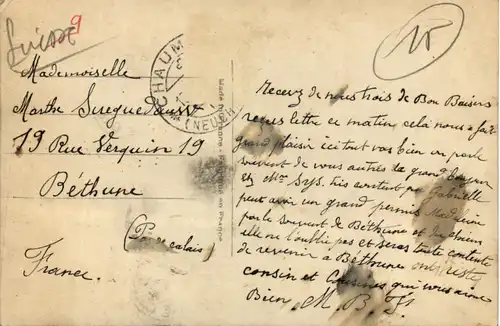 Suisse
9
Mademoiselle
Marthe
19 Rue Verquin 19
Béthune
(Pas de calais)
France.
CHAUM
(NEUCH
Made in France - Fabriqué en France
Recevez de nous trois de Bon Baisers
reçus lettre ce matin, celà nous a fait
grand plaisir ici tout vas bien on parle
souvent de vous autres
et Mr Sys, Gabrielle
peut avoir un grand permis
parle souvent de Béthune et
elle ne l'oublie pas et seras toute contente
de revenir à Béthune
cousin et cousines qui vous aime
Bien. M. B. F.